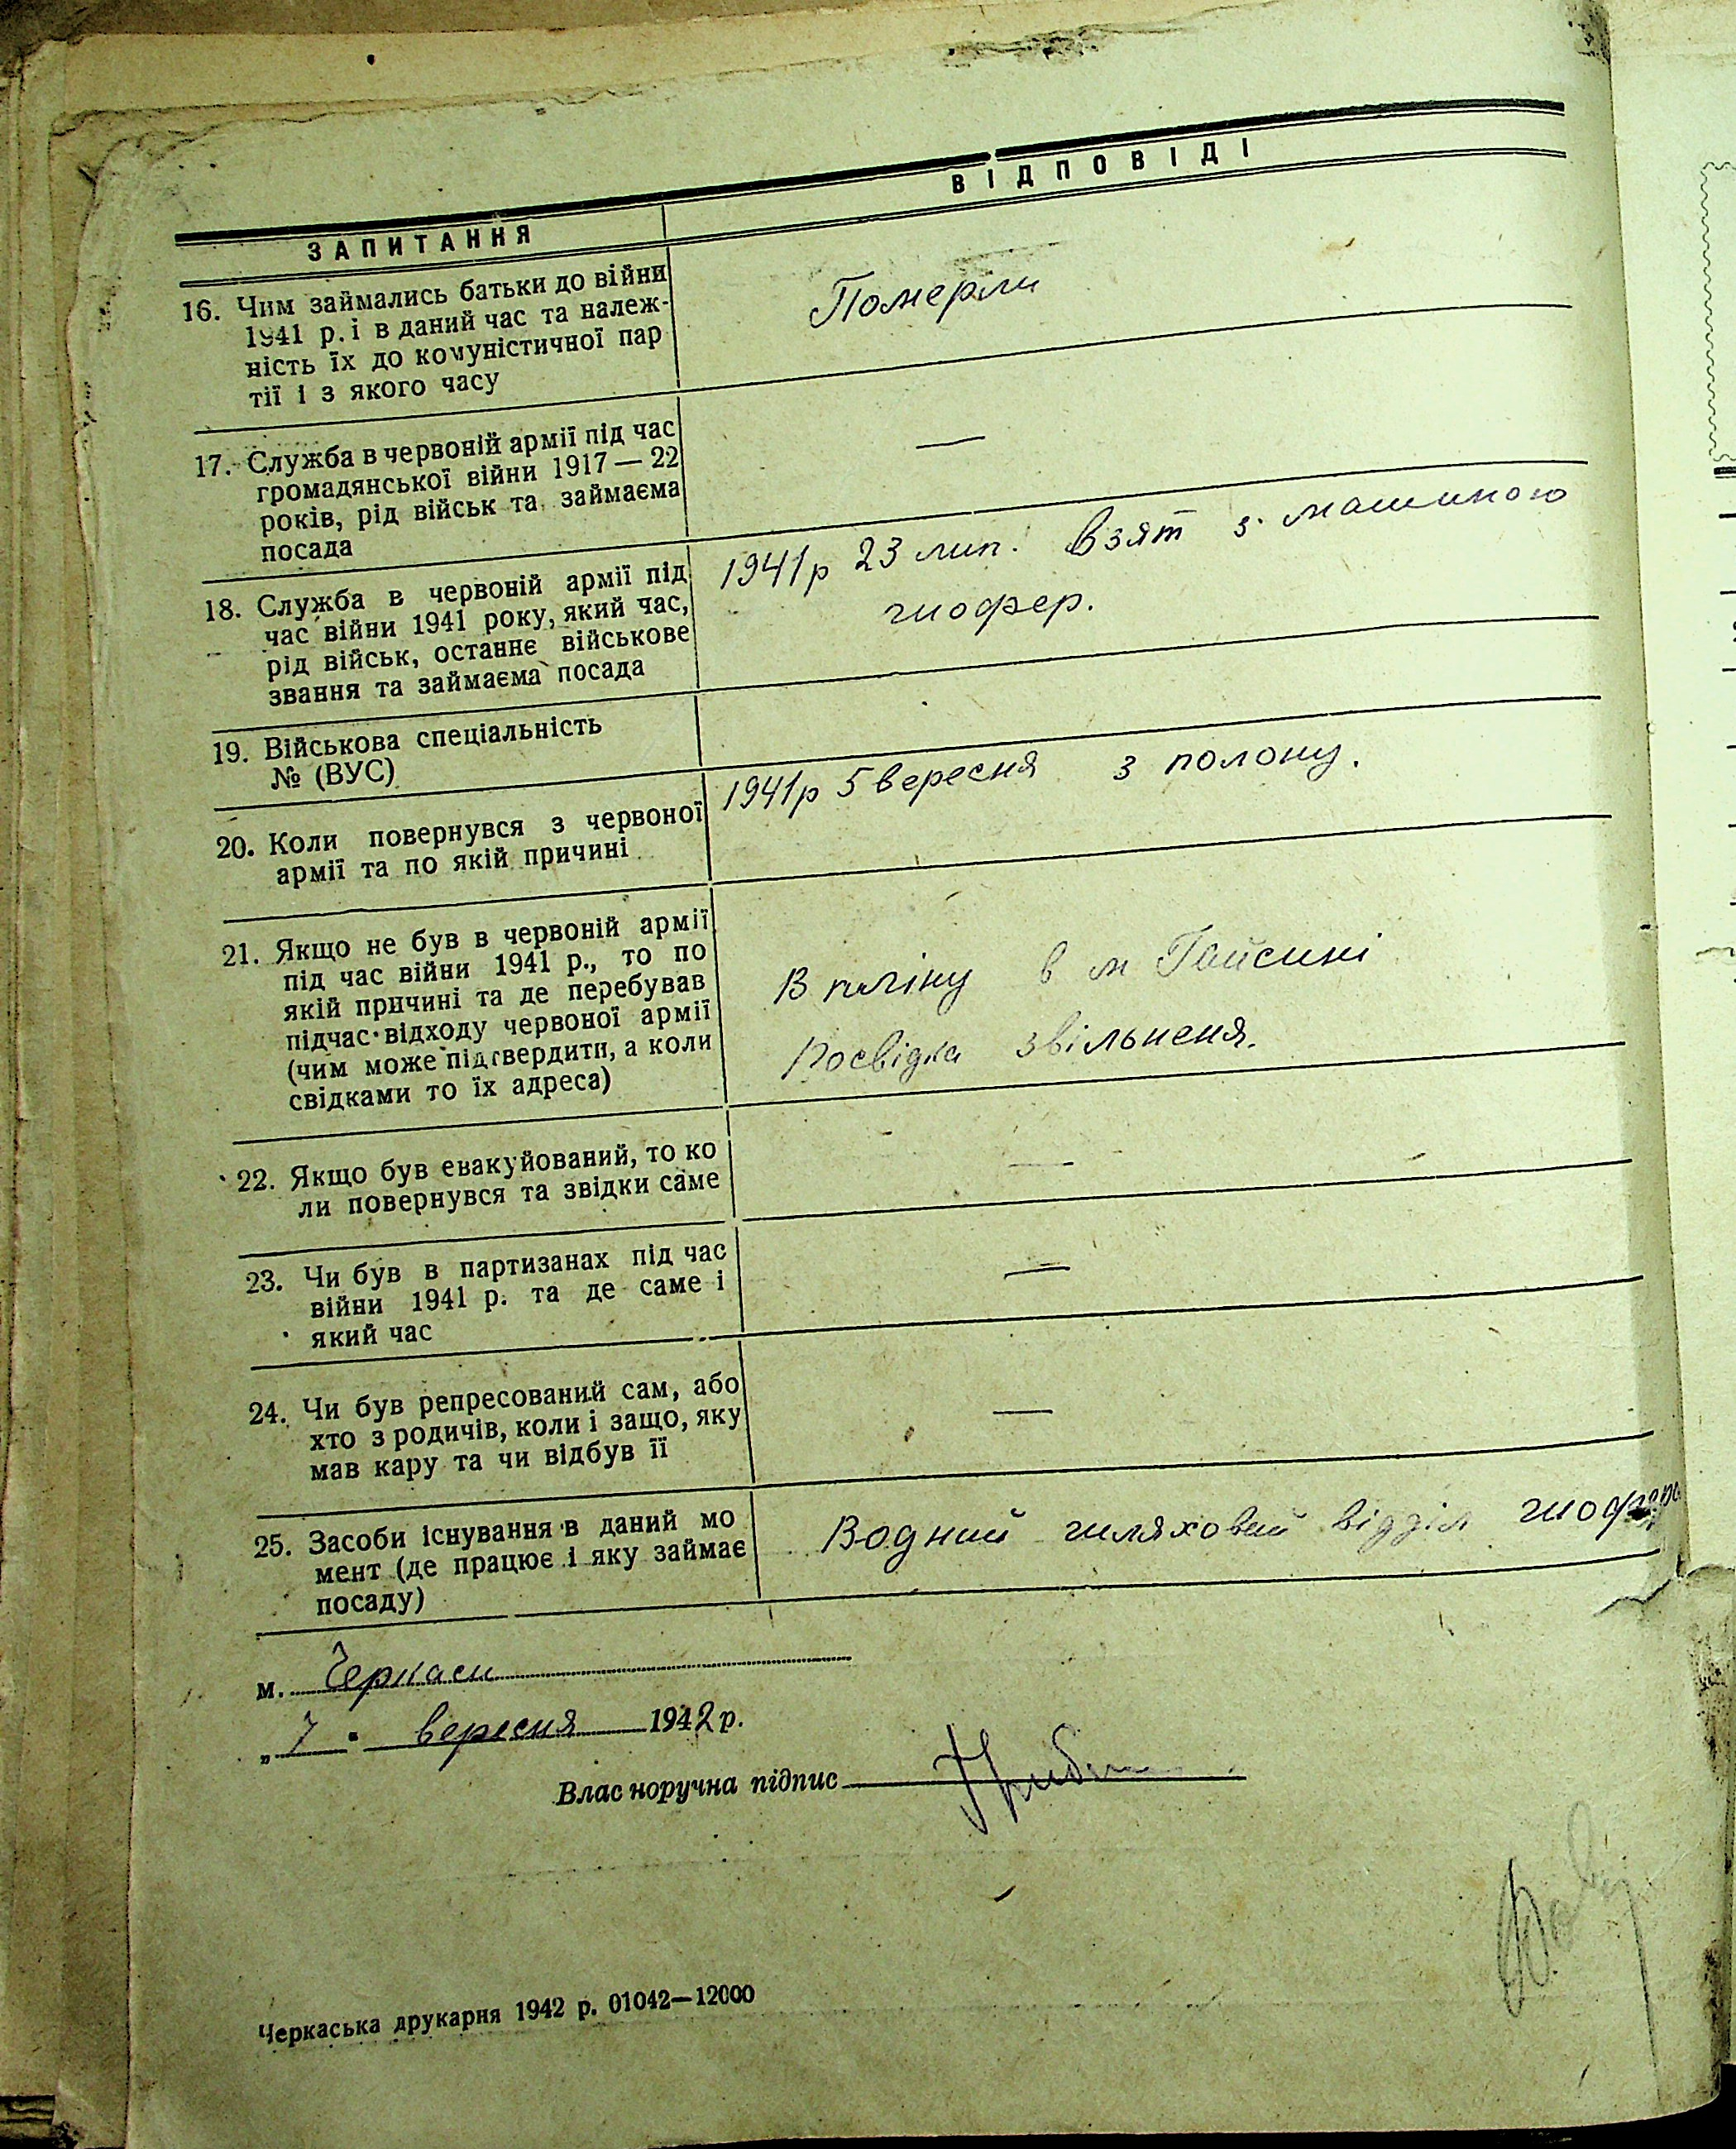 ЗАПИТАННЯ
ВІДПОВІДІ
16. Чим займались батьки до війни
1941 р. і в даний час та належ-
ність їх до комуністичної пар
тії і з якого часу
Померли
17. Служба в червоній армії під час
громадянської війни 1917 — 22
років, рід військ та займаєма
посада
—
18. Служба в червоній армії під
час війни 1941 року, який час,
рід військ, останнє військове
звання та займаєма посада
1941р 23 лип. Взят з машиною
шофер.
19. Військова спеціальність
№ (ВУС)
20. Коли повернувся з червоної
армії та по якій причині
1941р 5 вересня з полону.
21. Якщо не був в червоній армії
під час війни 1941 р., то по
якій причині та де перебував
підчас відходу червоної армії
(чим може підтвердити, а коли
свідками то їх адреса)
В пліну в м Гайсині
Посвідка звільненя.
22. Якщо був евакуйований, то ко
ли повернувся та звідки саме
—
23. Чи був в партизанах під час
війни 1941 р. та де саме і
який час
—
24. Чи був репресований сам, або
хто з родичів, коли і защо, яку
мав кару та чи відбув її
—
25. Засоби існування в даний мо
мент (де працює і яку займає
посаду)
Водний шляховий відділ
м. Черкаси
„ 7 " вересня 1942 р.
Власноручна підпис
Черкаська друкарня 1942 р. 01042—12000